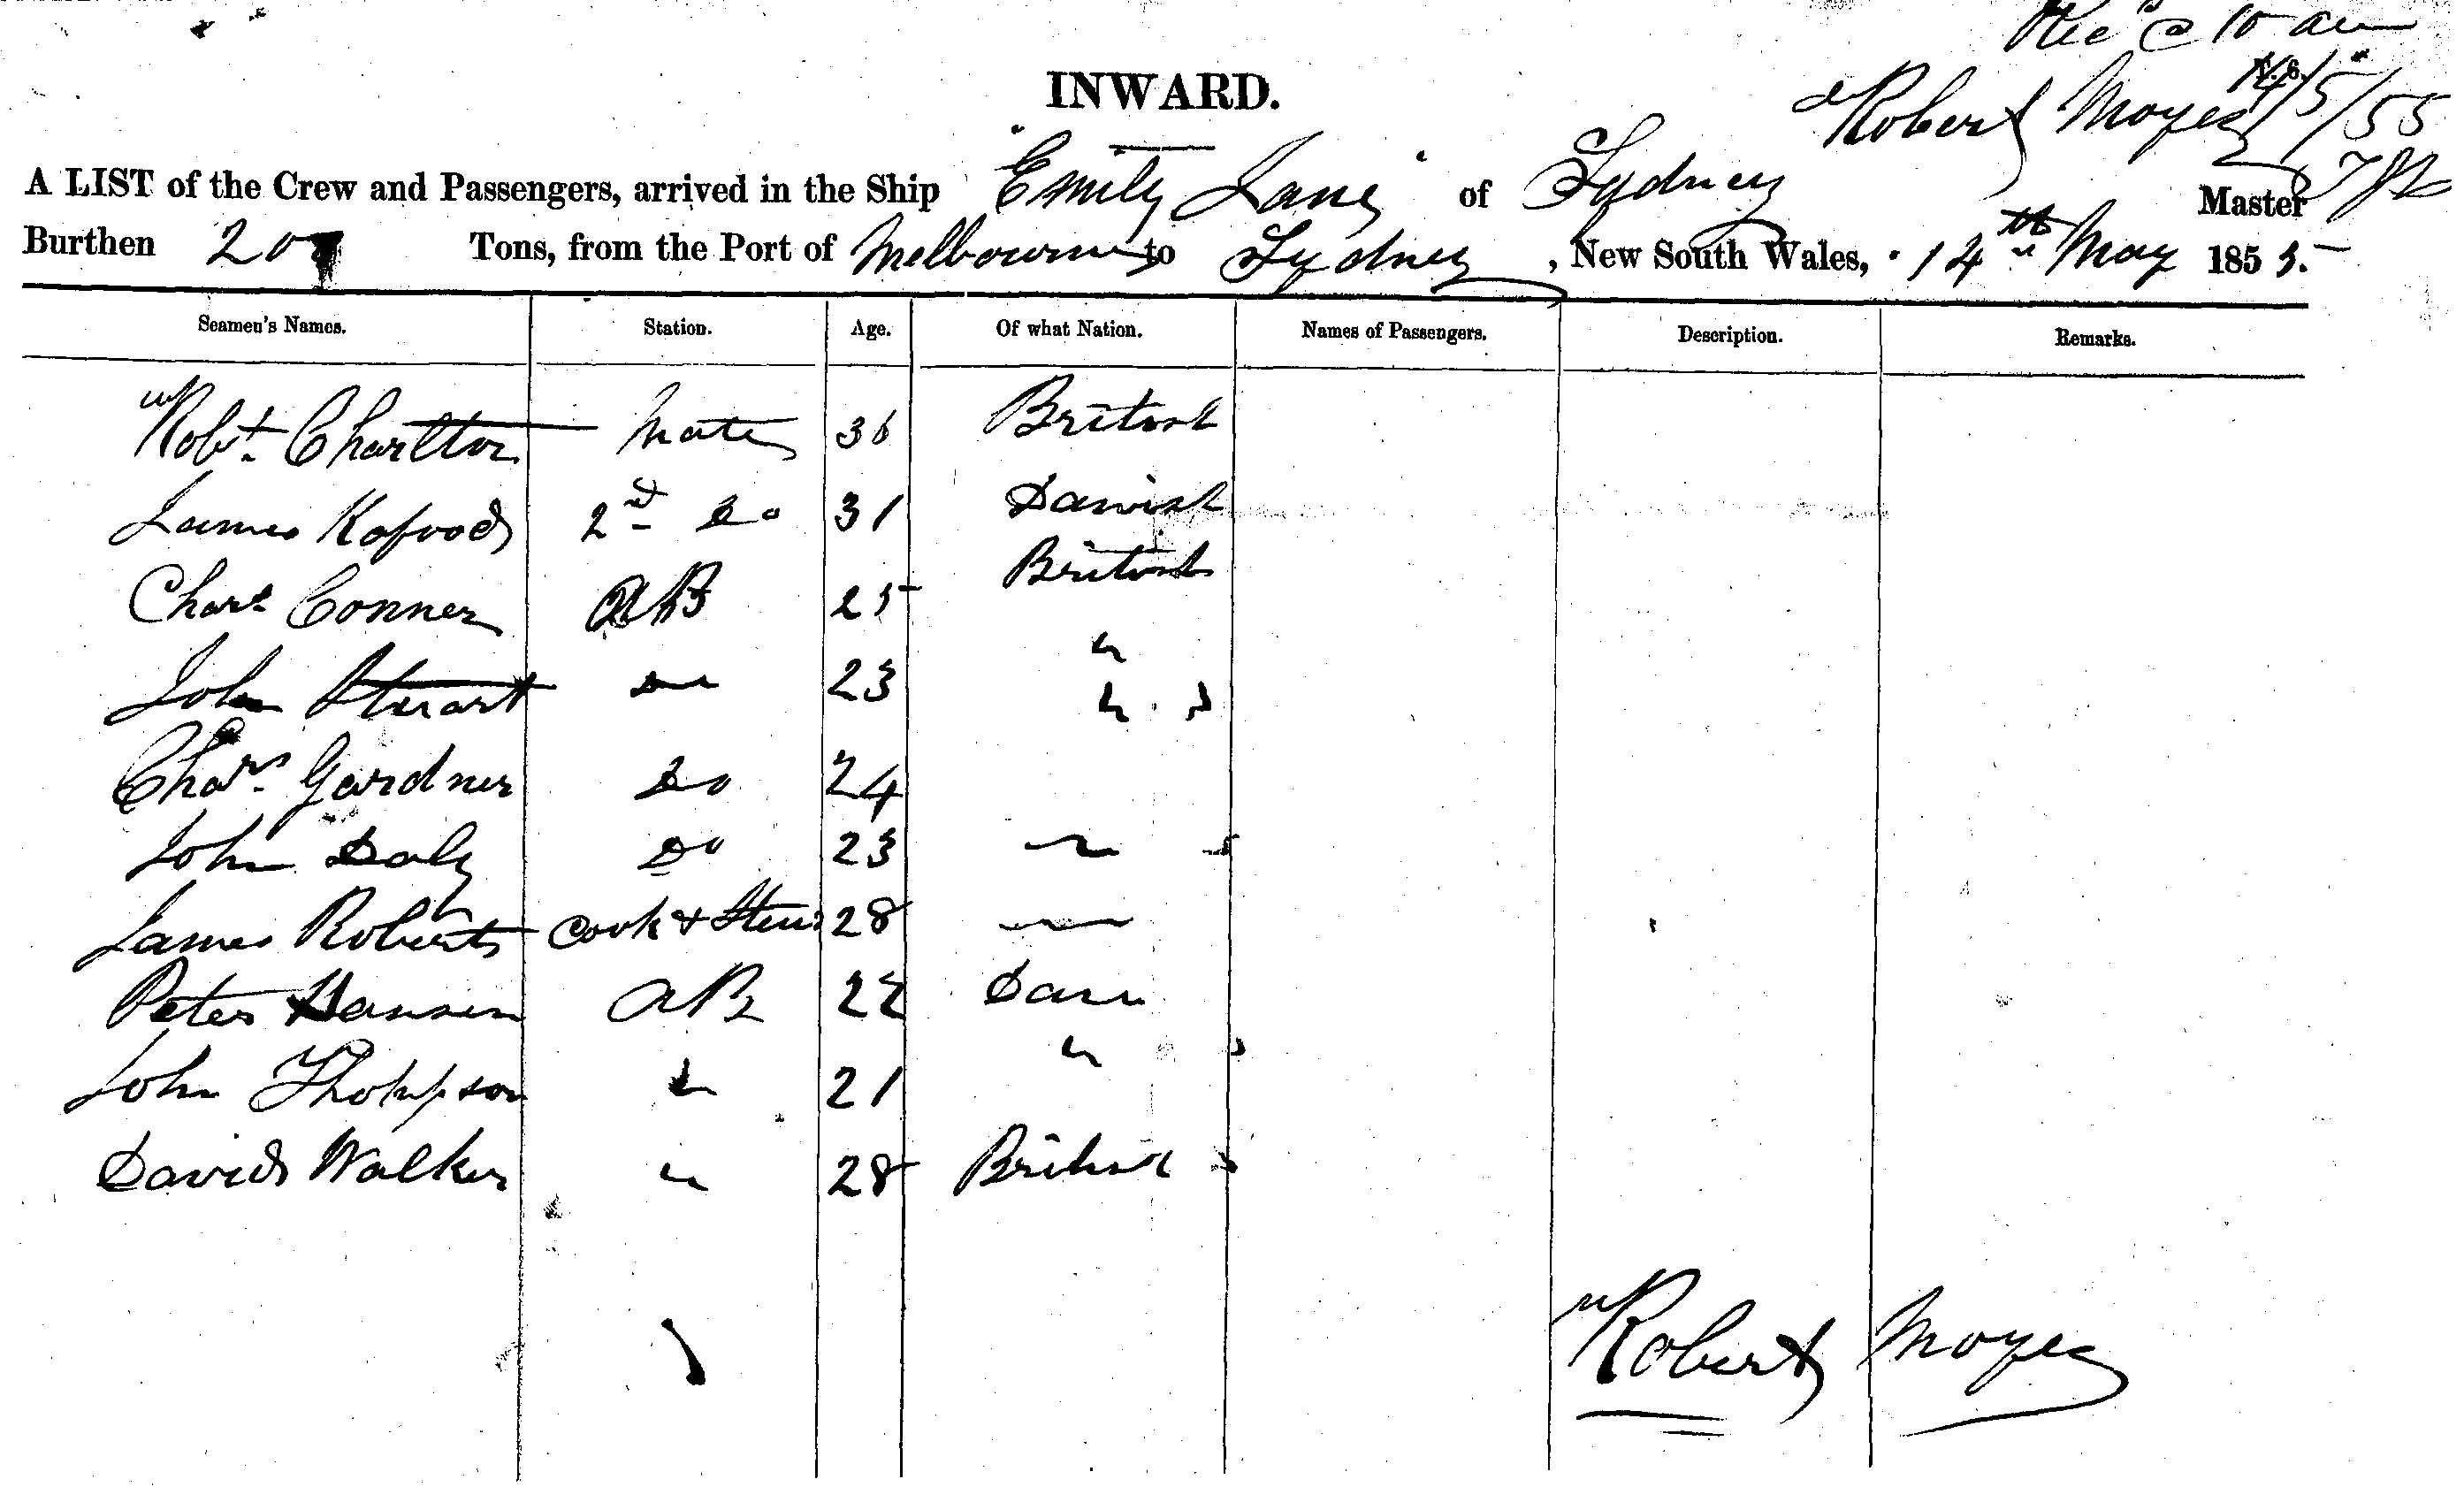 Rec @ 10 am
14/5/55
INWARD.
A LIST of the Crew and Passengers, arrived in the Ship "Emily Jane" of Sydney Robert Moyes Master
Burthen 20 Tons, from the Port of Melbourne to Sydney, New South Wales, 14th May 1855.
Seamen's Names. Station. Age. Of what Nation. Names of Passengers. Description. Remarks.
Robt. Charlton Mate 36 British
James Kofood 2nd Do 31 Danish
Chars Conner AB 25 British
John Stuart Do 23 "
Chas. Gardner Do 24 "
John Daly Do 23 "
James Roberts Cook & Stewd 28 "
Peter Hansen AB 22 Dane
John Thompson " 21 "
David Walker " 28 British
Robert Moyes